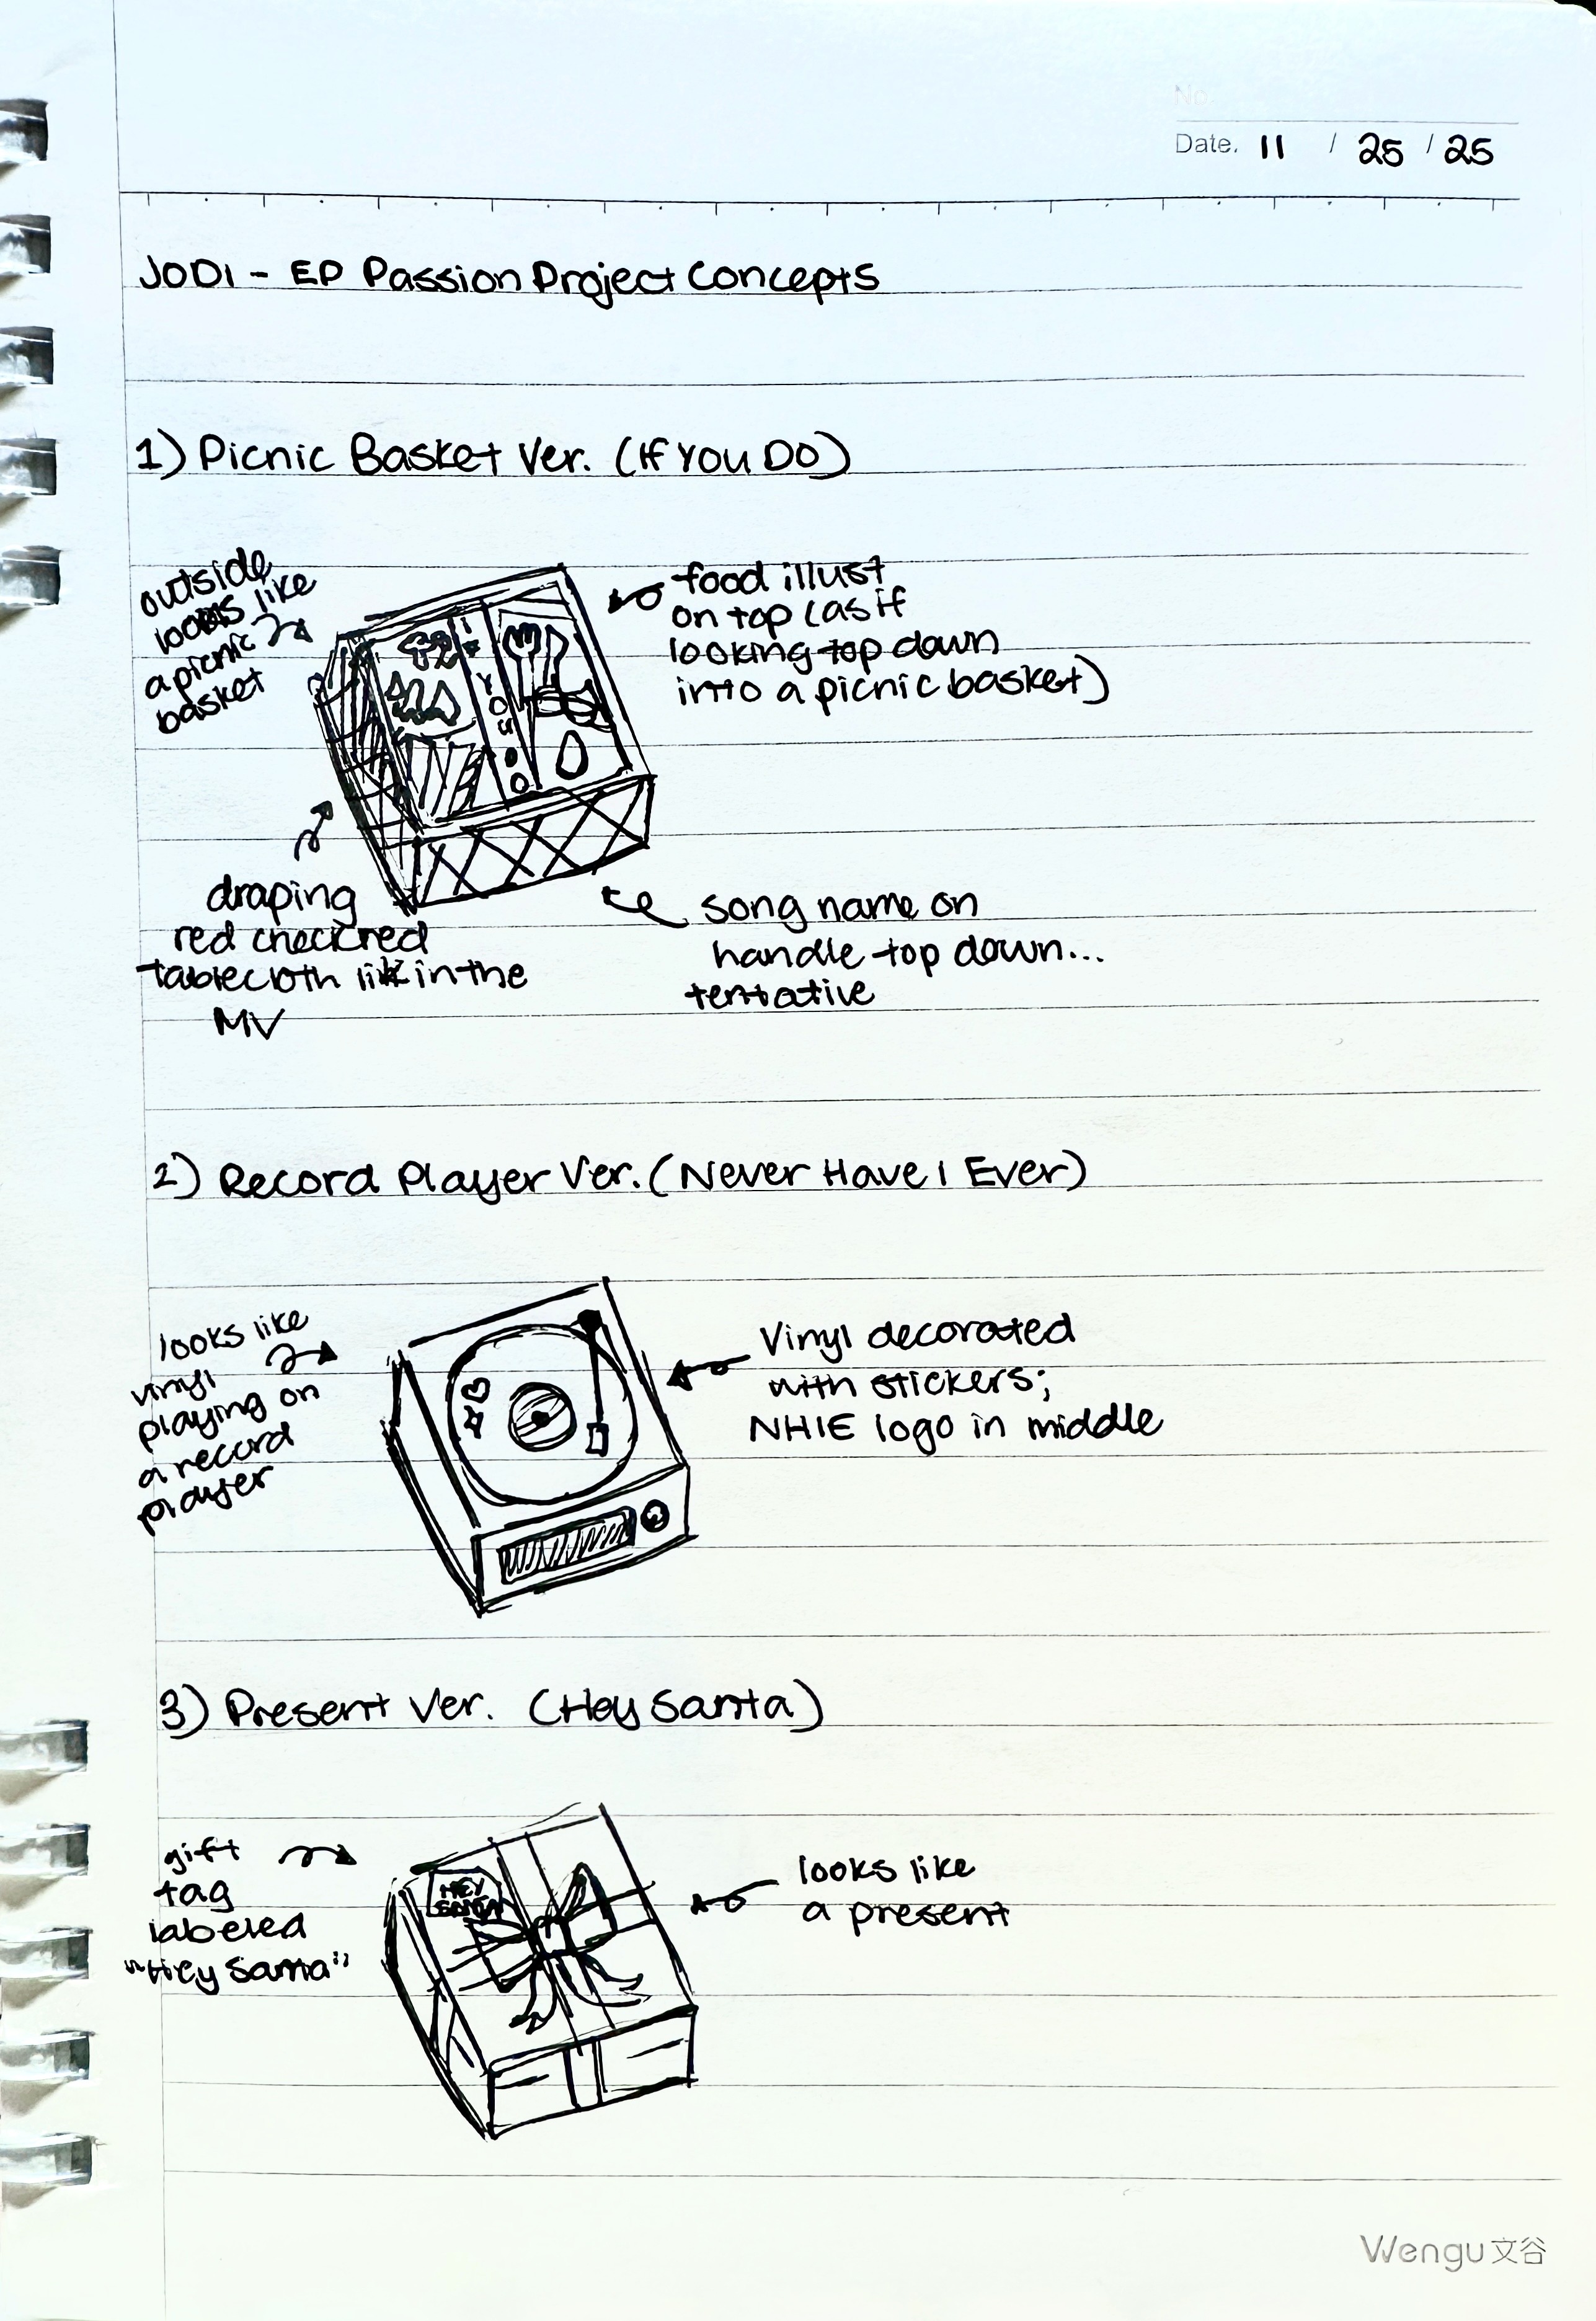 No.
Date. 11 / 25 / 25
JODI - EP Passion Project Concepts
1) Picnic Basket Ver. (If You Do)
outside
looks like
a picnic
basket
food illust
on top (as if
looking top down
into a picnic basket)
IF YOU DO
draping
red checkred
tablecloth like in the
MV
song name on
handle top down...
tentative
2) Record Player Ver. (Never Have I Ever)
looks like
vinyl
playing on
a record
player
Vinyl decorated
with stickers;
NHIE logo in middle
3) Present Ver. (Hey Santa)
gift
tag
labeled
"Hey Santa"
HEY
SANTA
looks like
a present
Wengu 文谷